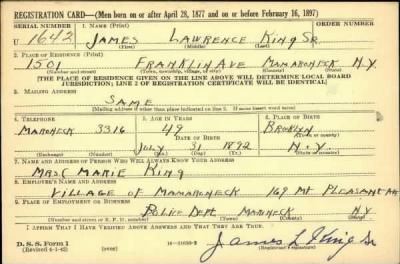 REGISTRATION CARD—(Men born on or after April 28, 1877 and on or before February 16, 1897)
SERIAL NUMBER 1. NAME (Print)
U 1642 JAMES LAWRENCE KING SR.
(First) (Middle) (Last)
2. PLACE OF RESIDENCE (Print)
1501 FRANKLIN AVE MAMARONECK N.Y.
(Number and street) (Town, township, village, or city) (County) (State)
[THE PLACE OF RESIDENCE GIVEN ON THE LINE ABOVE WILL DETERMINE LOCAL BOARD
JURISDICTION; LINE 2 OF REGISTRATION CERTIFICATE WILL BE IDENTICAL]
3. MAILING ADDRESS
SAME
[Mailing address if other than place indicated on line 2. If same insert word same]
4. TELEPHONE 5. AGE IN YEARS 6. PLACE OF BIRTH
MARONECK 3316 49 BROOKLYN
DATE OF BIRTH (Town or county)
JULY 31 1892 N.Y.
(Exchange) (Number) (Mo.) (Day) (Yr.) (State or country)
7. NAME AND ADDRESS OF PERSON WHO WILL ALWAYS KNOW YOUR ADDRESS
MRS. MARIE KING
8. EMPLOYER'S NAME AND ADDRESS
VILLAGE OF MAMARONECK 169 MT PLEASANT AVE
9. PLACE OF EMPLOYMENT OR BUSINESS
POLICE DEPT. MARONECK N.Y.
(Number and street or R. F. D. number) (Town) (County) (State)
I AFFIRM THAT I HAVE VERIFIED ABOVE ANSWERS AND THAT THEY ARE TRUE.
D. S. S. Form 1
(Revised 4-1-42) (over) James L King Sr
(Registrant's signature)